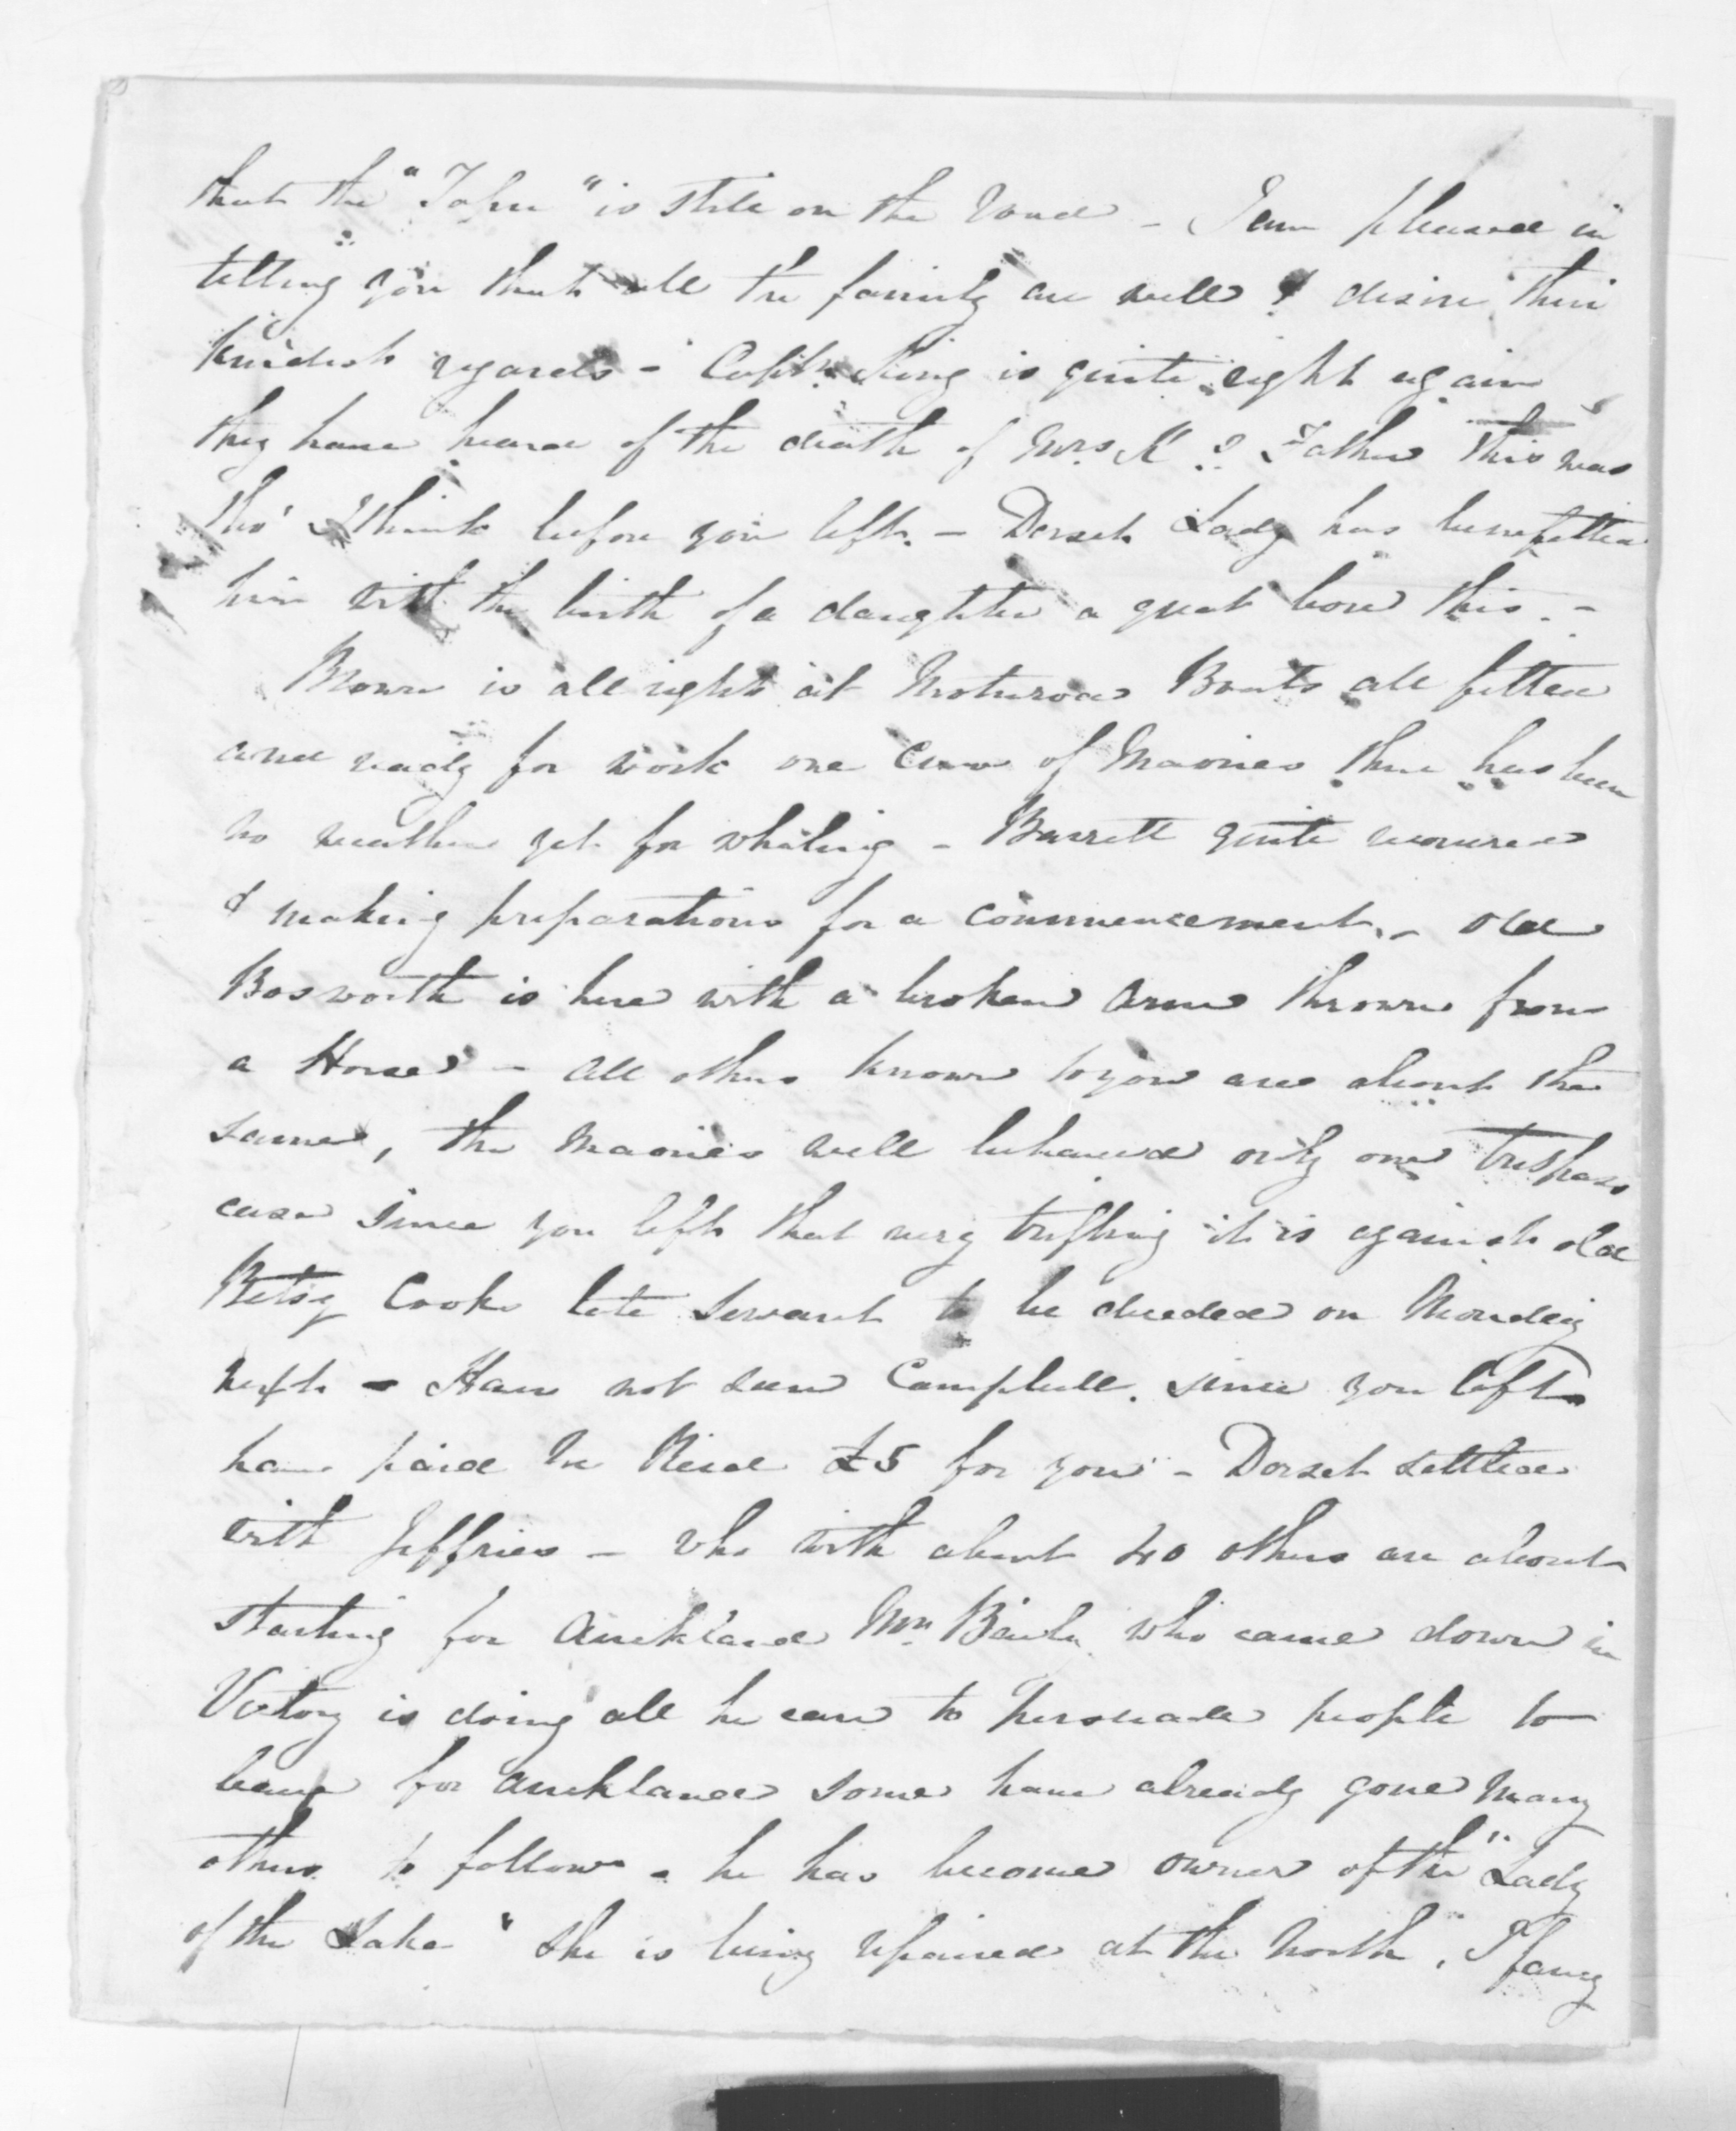 that the "John" is still on the Road - I am pleased in
telling you that all the family are well & desire their
kindest regards - Captn. King is quite right again
they have heard of the death of Mrs. K's Father this was
tho' I think before you left. - Dorset Lady has benefitted
him with the birth of a daughter a great bore this. -
Brown is all right at Moturoa Boats all fitted
and ready for work one Crew of Maories there has been
no weather yet for whaling - Barrett quite recovered
& making preparations for a commencement. - Old
Bosworth is here with a broken Arm thrown from
a Horse - all others known to you are about the
same, the Maories well behaved only one trespass
case since you left that very trifling it is against old
Betsy Cooks late servant to be decided on Monday
next - Have not seen Campbell. since you left
have paid £5 for you - Dorset settled
with Jeffries - who with about 40 others are about
starting for Auckland Mr. who came down in
Victory is doing all he can to persuade people to
leave for Auckland some have already gone Many
others to follow - he has become owner of the "Lady
of the Lake" She is being repaired at the North, I fancy